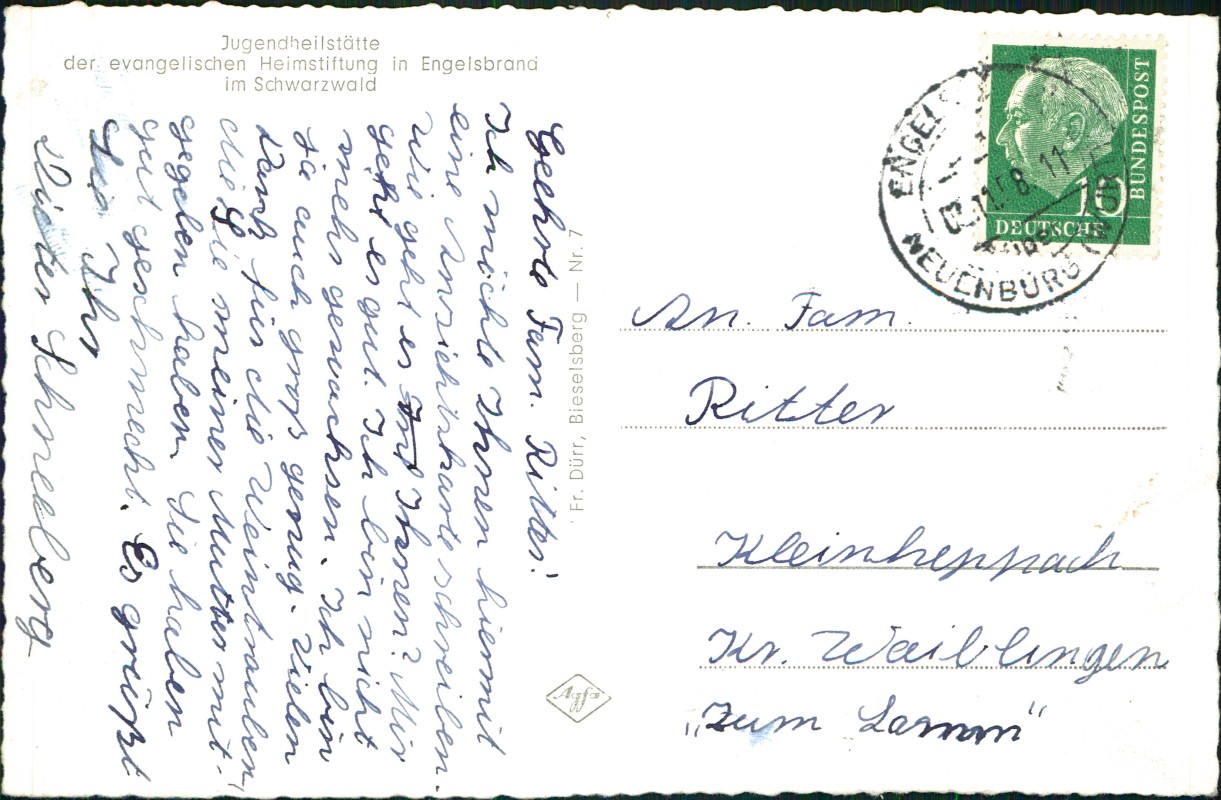 Jugendheilstätte
der evangelischen Heimstiftung in Engelsbrand
im Schwarzwald
Geehrte Fam. Ritter!
Ich möchte Ihnen hiermit
eine Ansichtskarte schreiben.
Wie geht es Ihnen? Mir
geht es gut. Ich bin nicht
mehr gewachsen. Ich bin
ja auch groß genug. Vielen
Dank für die Weintrauben,
die Sie meiner Mutter mit-
gegeben haben. Sie haben
gut geschmeckt. Es grüßt
Sie Ihr
Dieter Schneeberg
Fr. Dürr, Bieselsberg — Nr. 7
Agfa
DEUTSCHE
BUNDESPOST
10
NEUENBÜRG
An Fam.
Ritter
Kleinheppach
Kr. Waiblingen
„Zum Lamm"